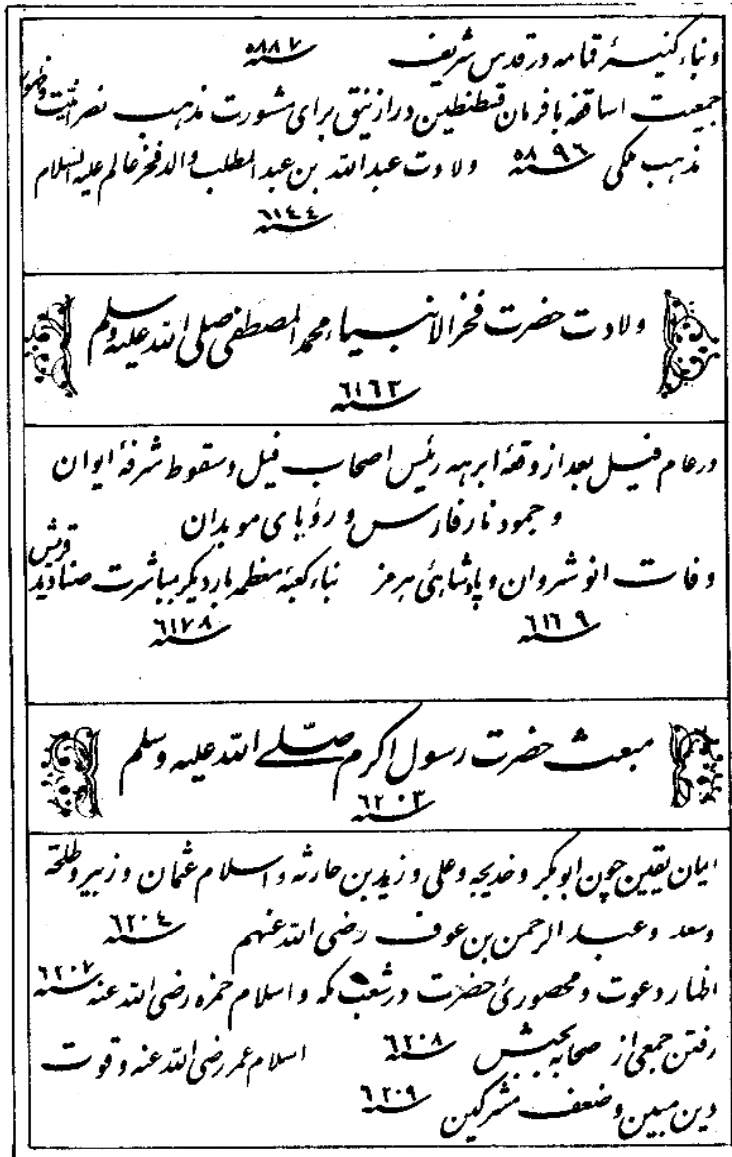 و بناء کنیسهٔ قمامه در قدس شریف سنه ٥٨٨٧
جمعیت اساقفه با فرمان قسطنطین در ازنیق برای مشورت مذهب نصرانیت و ظهور
مذهب ملکی سنه ٥٨٩٦ ولادت عبدالله بن عبدالمطلب والد فخر عالم علیه السلام
سنه ٦١٤٤
ولادت حضرت فخر الانبیاء محمد المصطفی صلی الله علیه وسلم
سنه ٦١٦٢
در عام فیل بعد از وقعهٔ ابرهه رئیس اصحاب فیل و سقوط شرفهٔ ایوان
و جمود نار فارس و رؤیای موبدان
وفات انوشروان و پادشاهئ هرمز بناء کعبهٔ معظمه بار دیگر بمباشرت صنادید قریش
سنه ٦١٦٩ سنه ٦١٧٨
مبعث حضرت رسول اکرم صلّی الله علیه وسلم
سنه ٦٢٠٣
ایمان یقین چون ابوبکر و خدیجه و علی و زید بن حارثه و اسلام عثمان و زبیر و طلحة
وسعد و عبد الرحمن بن عوف رضی الله عنهم سنه ٦٢٠٤
اظهار دعوت و محصورئ حضرت در شعب مکه و اسلام حمزه رضی الله عنه سنه ٦٢٠٧
رفتن جمعی از صحابه بحبش سنه ٦٢٠٨ اسلام عمر رضی الله عنه و قوت
دین مبین و ضعف مشرکین سنه ٦٢٠٩